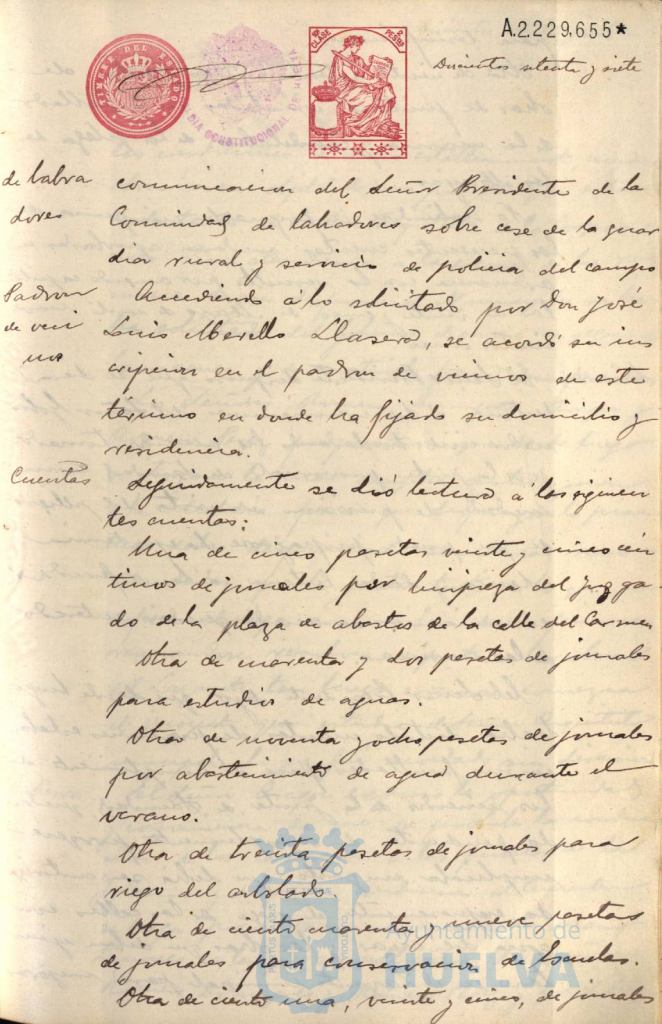 A.2.229,655*
TIMBRE DEL ESTADO
DIA CONSTITUCIONAL DE
10ª CLASE 2 PESETAS
Ducientos setenta y siete
de labra
dores
comunicacion del Señor Presidente de la
Comunidad de labradores sobre cese de la guar
dia rural y servicio de policia del campo
Padron
de veci
nos
Accediendo á lo solicitado por Don José
Luis Morello Llasera, se acordó su ins
cripcion en el padron de vecinos de este
término en donde ha fijado su domicilio y
residencia.
Cuentas
Seguidamente se dió lectura á las siguien
tes cuentas:
Una de cinco pesetas veinte y cinco cén
timos de jornales por limpieza del juzga
do de la plaza de abastos de la calle del Carmen
Otra de cuarenta y dos pesetas de jornales
para estudios de aguas.
Otra de noventa y ocho pesetas de jornales
por abastecimiento de agua durante el
verano.
Otra de treinta pesetas de jornales para
riego del arbolado
Otra de ciento cuarenta y nueve pesetas
de jornales para conservacion de Escuelas.
Otra de ciento una, veinte y cinco, de jornales
Ayuntamiento de
HUELVA